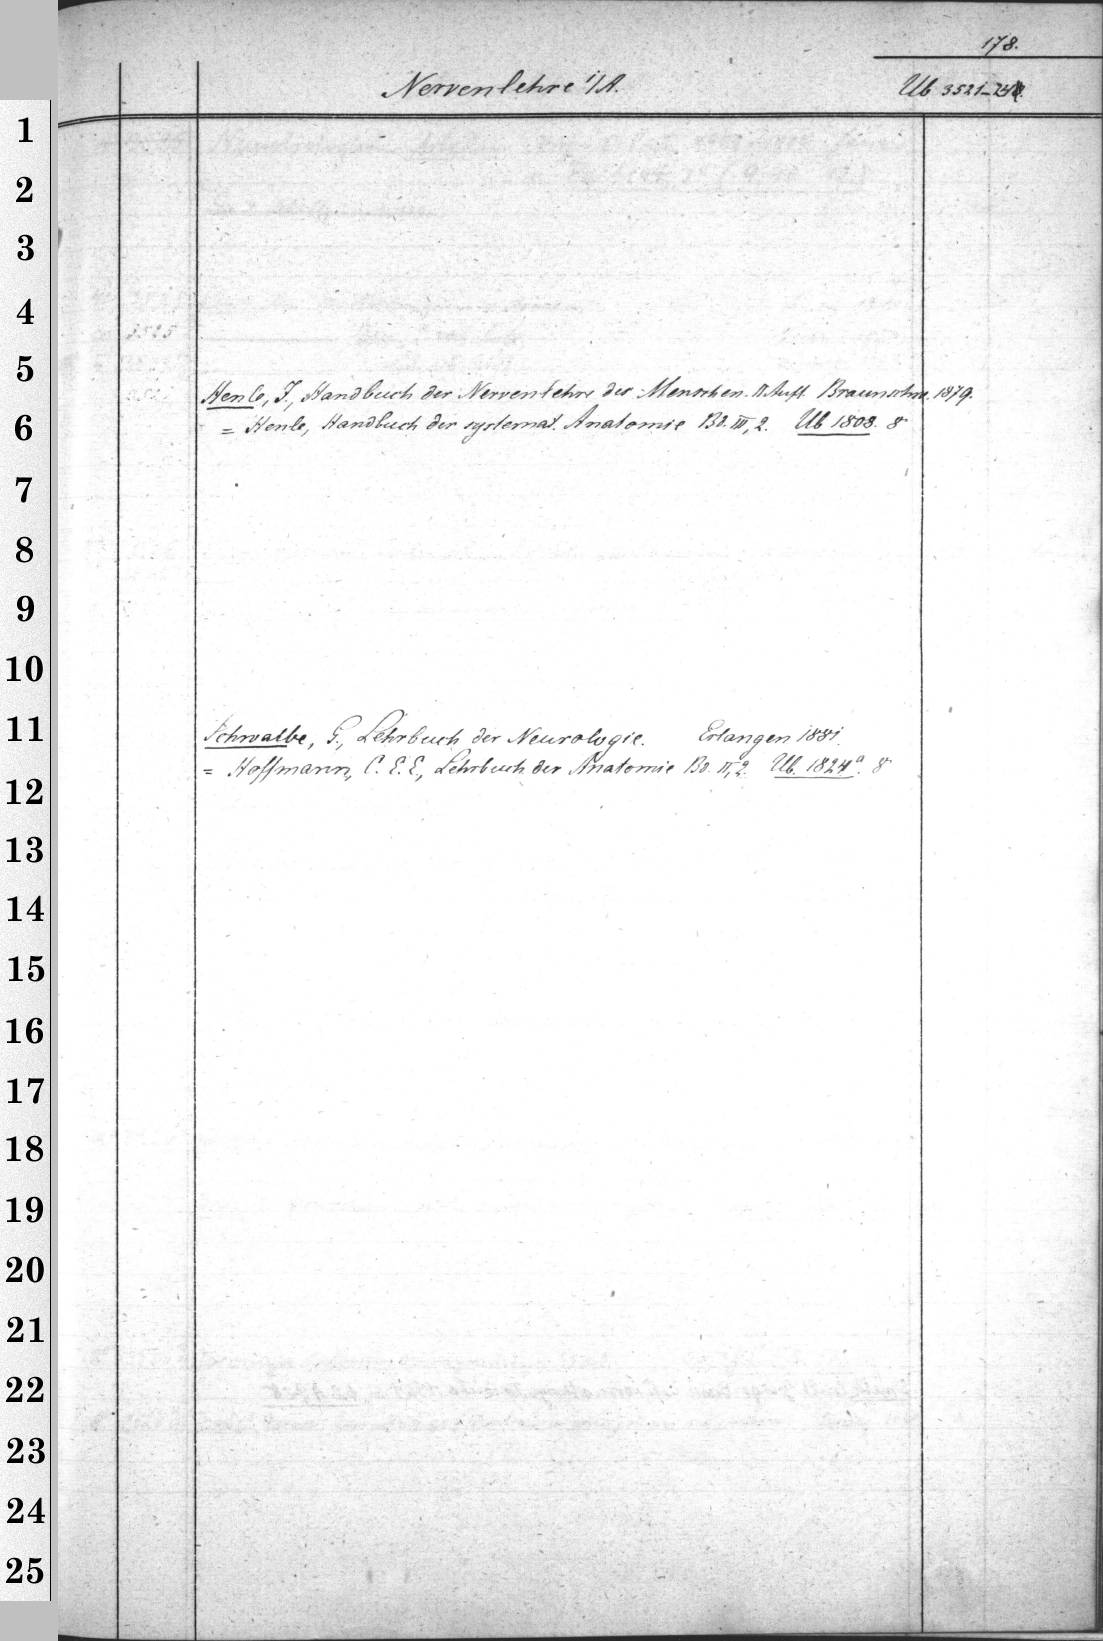 178.
Nervenlehre i/A.
Ub 3521-
1
2
3
4
5
Henle, J., Handbuch der Nervenlehre des Menschen. II Aufl. Braunschw. 1879.
6
= Henle, Handbuch der systemat. Anatomie Bd. III, 2. Ub 1808. 8°
7
8
9
10
11
Schwalbe, G., Lehrbuch der Neurologie. Erlangen 1881.
= Hoffmann, C. E. E., Lehrbuch der Anatomie Bd. II, 2. Ub. 1824a. 8°
12
13
14
15
16
17
18
19
20
21
22
23
24
25